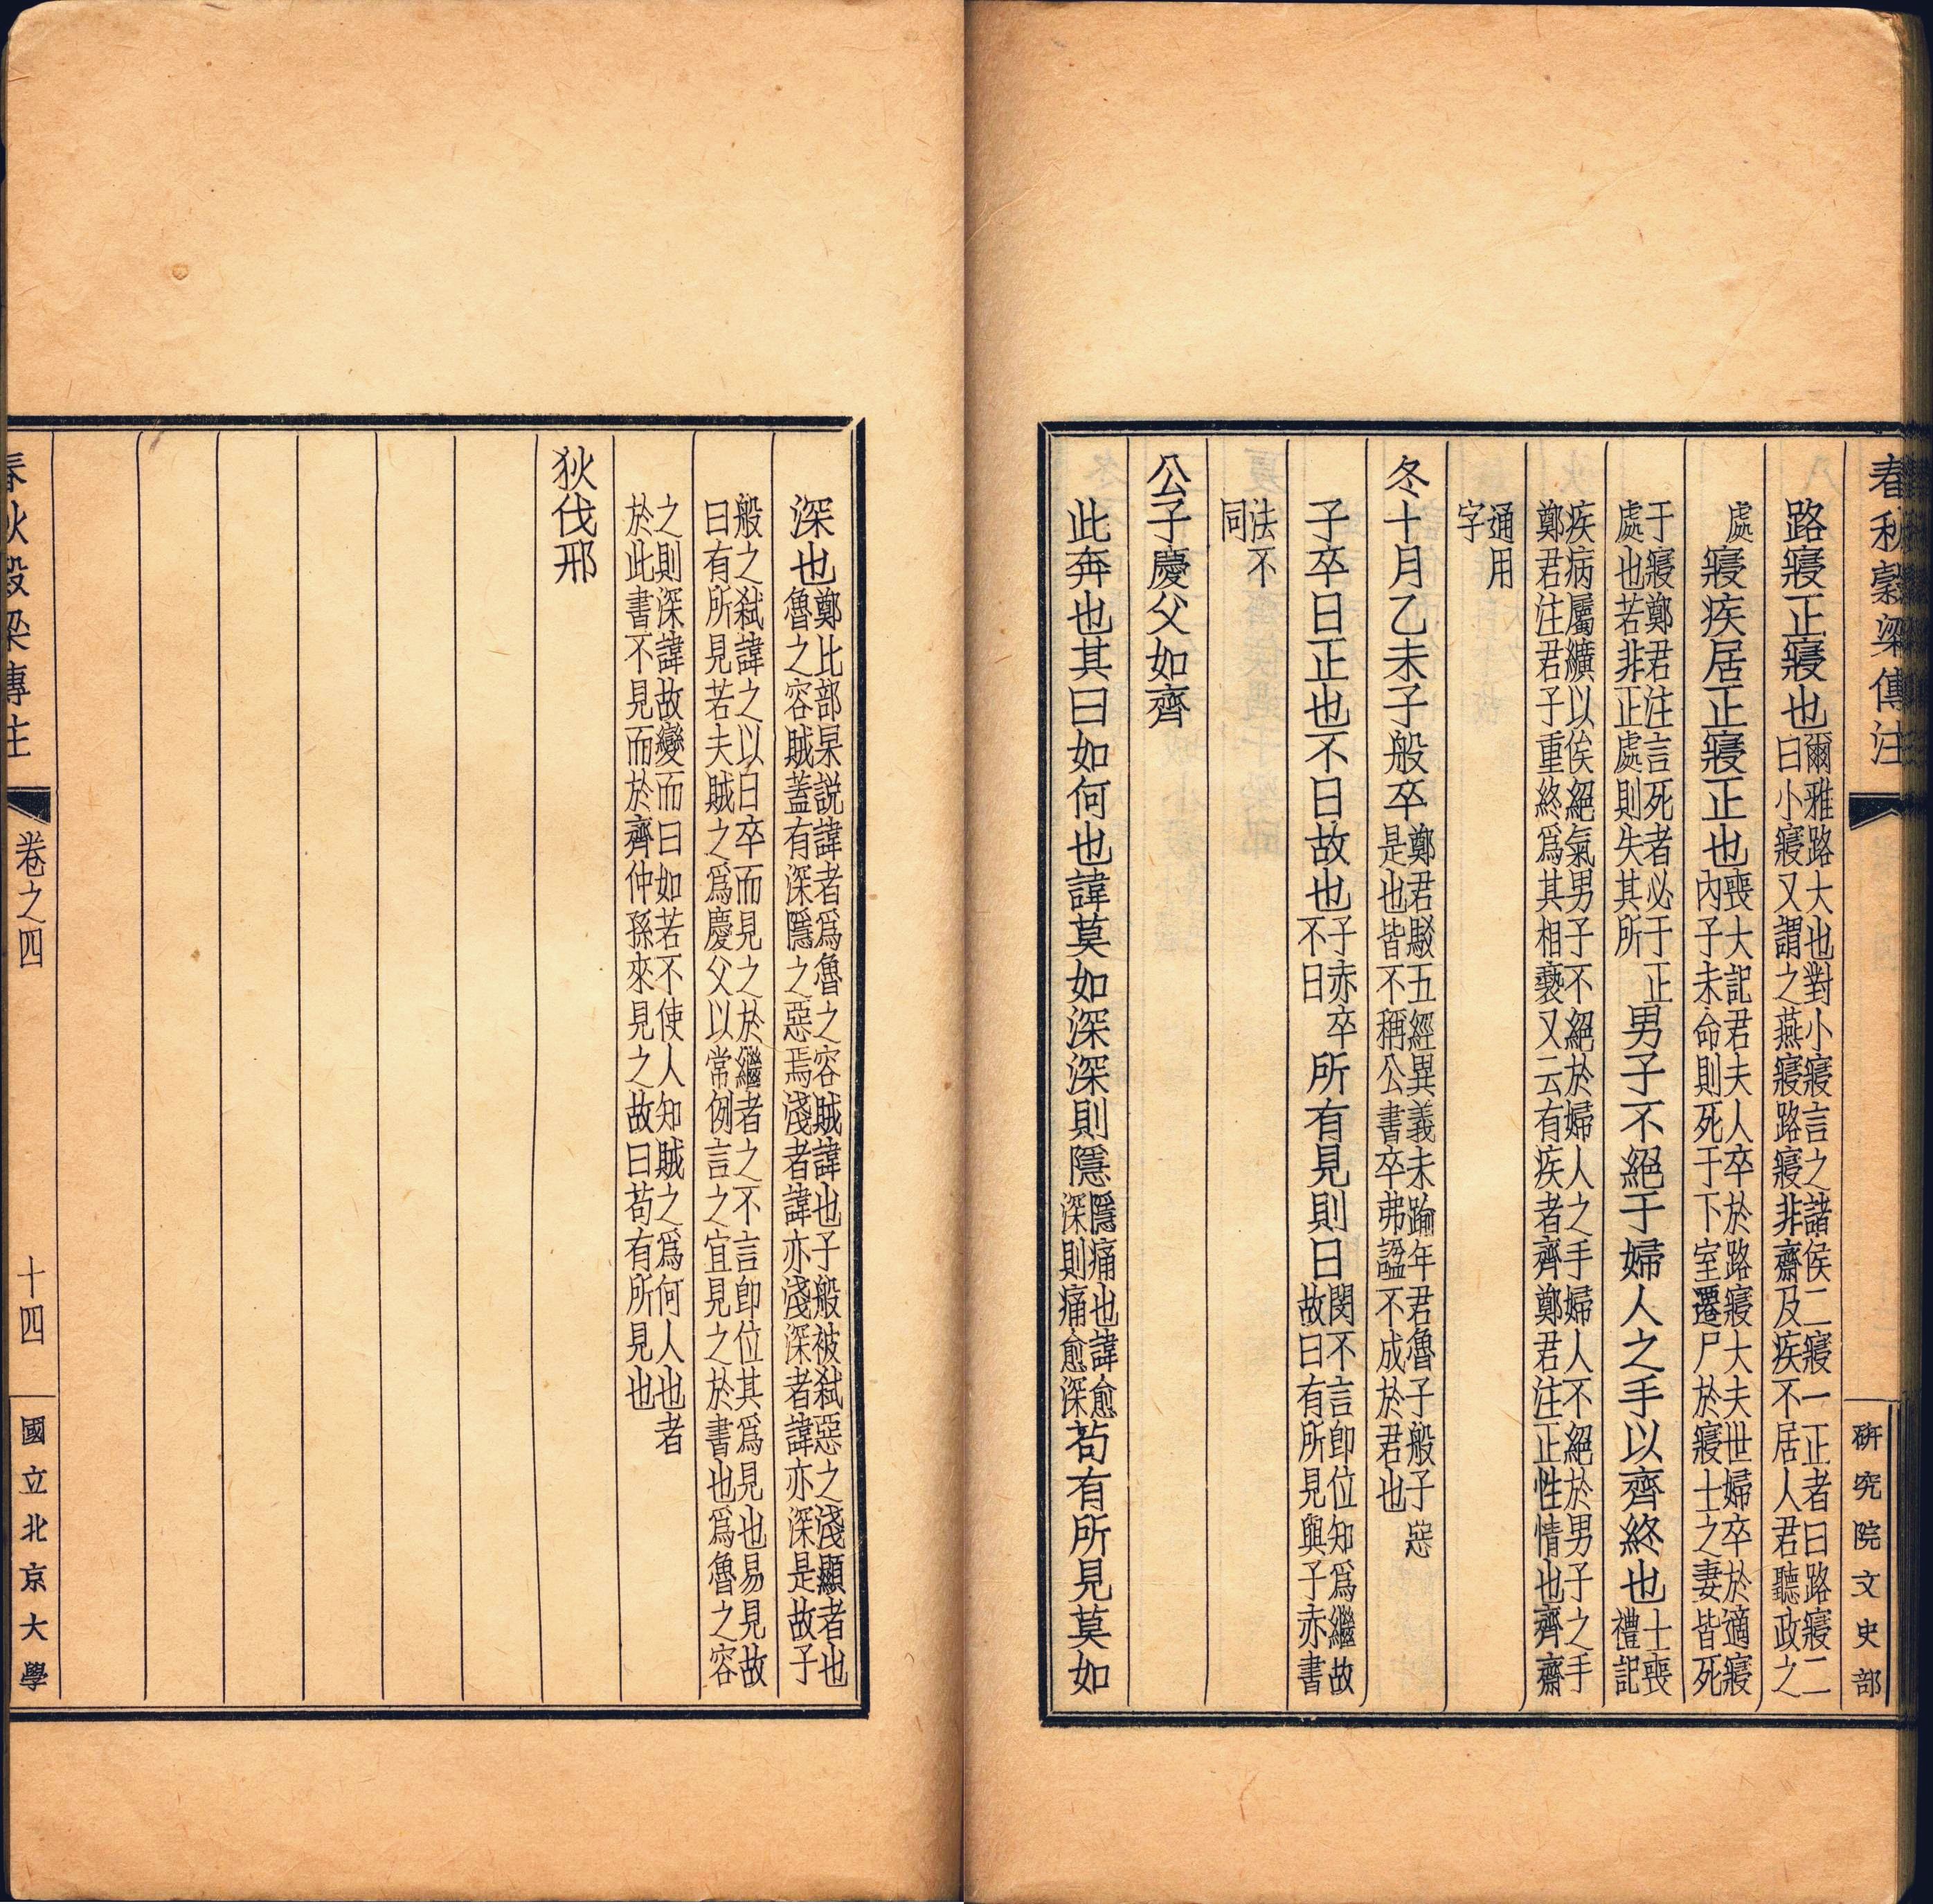 春秋穀梁傳注
研究院文史部
路寢正寢也爾雅路大也對小寢言之諸侯二寢一正者曰路寢二曰小寢又謂之燕寢路寢非齋及疾不居人君聽政之
處寢疾居正寢正也喪大記君夫人卒於路寢大夫世婦卒於適寢內子未命則死于下室遷尸於寢士之妻皆死
于寢鄭君注言死者必于正處也若非正處則失其所男子不絕于婦人之手以齊終也士喪禮記
疾病屬纊以俟絕氣男子不絕於婦人之手婦人不絕於男子之手鄭君注君子重終爲其相褻又云有疾者齊鄭君注正性情也齊齋
通用字
冬十月乙未子般卒鄭君駁五經異義未踰年君魯子般子惡是也皆不稱公書卒弗諡不成於君也
子卒日正也不日故也子赤卒不日所有見則日閔不言卽位知爲繼故故曰有所見與子赤書
法不同
公子慶父如齊
此奔也其曰如何也諱莫如深深則隱隱痛也諱愈深則痛愈深苟有所見莫如
深也鄭比部杲説諱者爲魯之容賊諱也子般被弒惡之淺顯者也魯之容賊蓋有深隱之惡焉淺者諱亦淺深者諱亦深是故子
般之弒諱之以日卒而見之於繼者之不言卽位其爲見也易見故曰有所見若夫賊之爲慶父以常例言之宜見之於書也爲魯之容
之則深諱故變而曰如若不使人知賊之爲何人也者於此書不見而於齊仲孫來見之故曰苟有所見也
狄伐邢
春秋穀梁傳注
卷之四
十四
國立北京大學